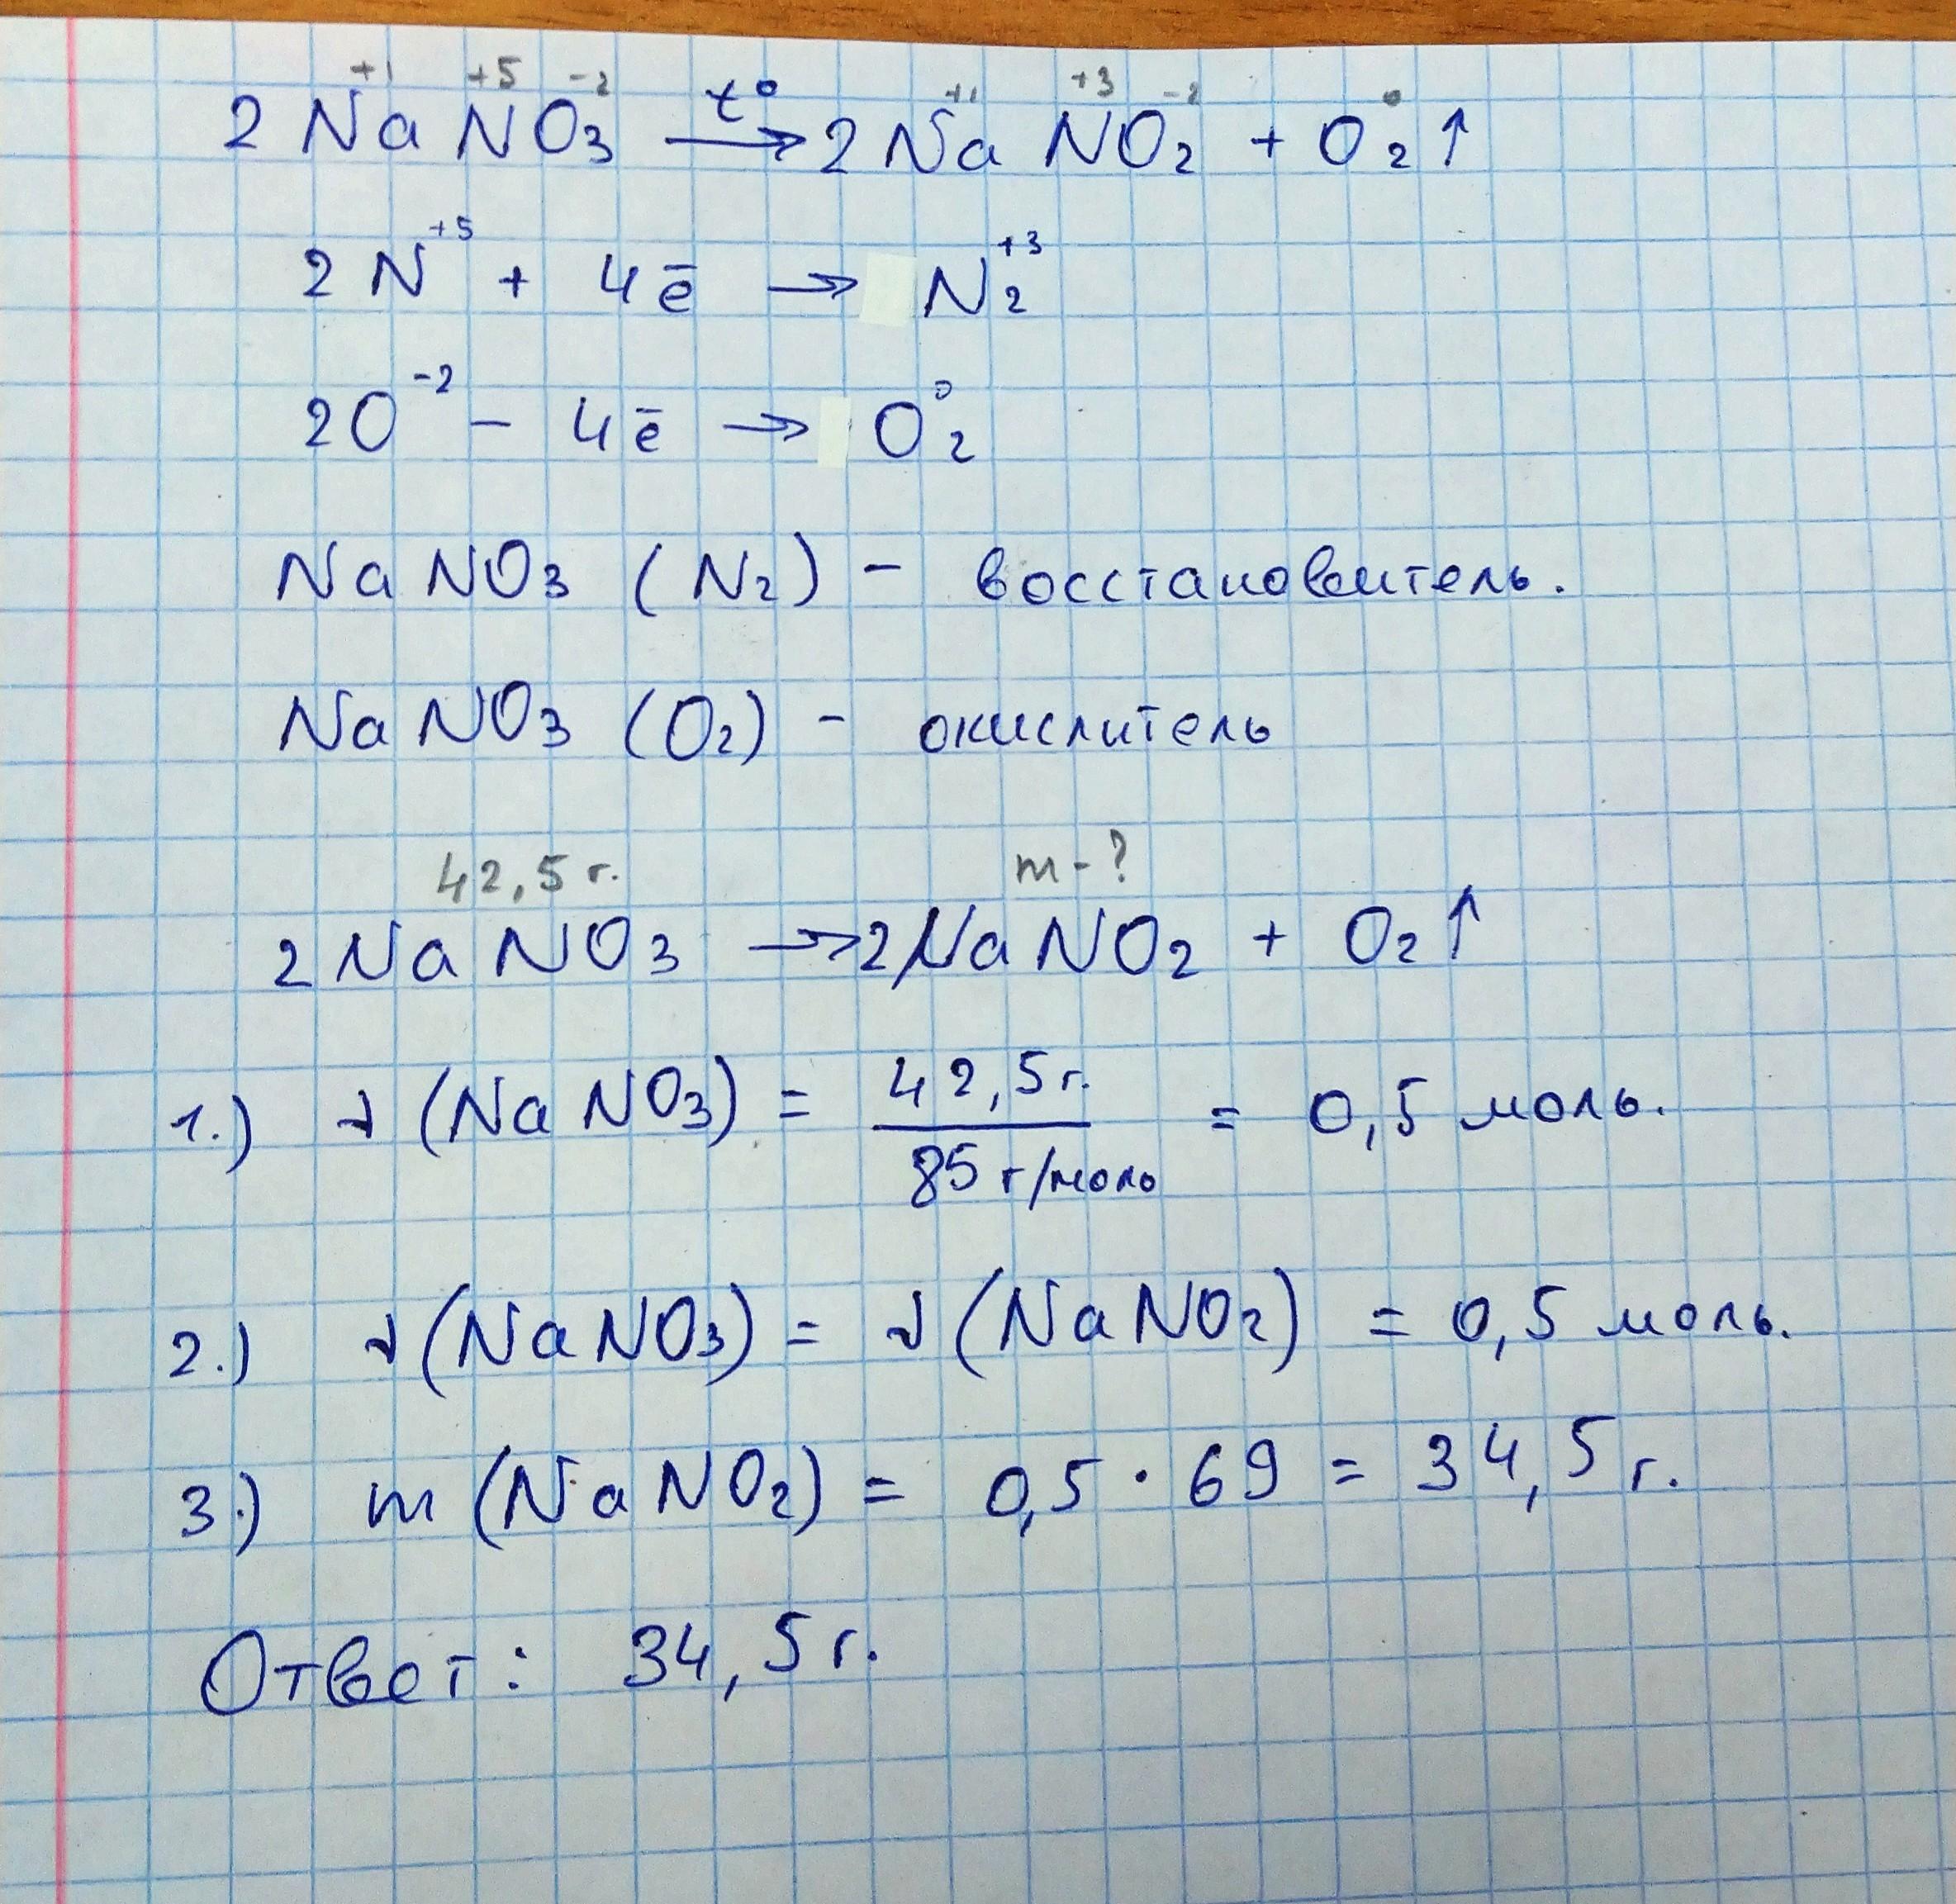 +1 +5 -2 +1 +3 -2 0
2 NaNO₃ t° → 2 NaNO₂ + O₂↑
2 N⁺⁵ + 4ē → N₂⁺³
2O⁻² - 4ē → O₂⁰
NaNO₃ (N₂) - восстановитель.
NaNO₃ (O₂) - окислитель
42,5 г. m-?
2 NaNO₃ → 2NaNO₂ + O₂↑
1.) ν (NaNO₃) = 42,5 г. / 85 г/моль = 0,5 моль.
2.) ν (NaNO₃) = ν (NaNO₂) = 0,5 моль.
3.) m (NaNO₂) = 0,5 · 69 = 34,5 г.
Ответ: 34,5 г.